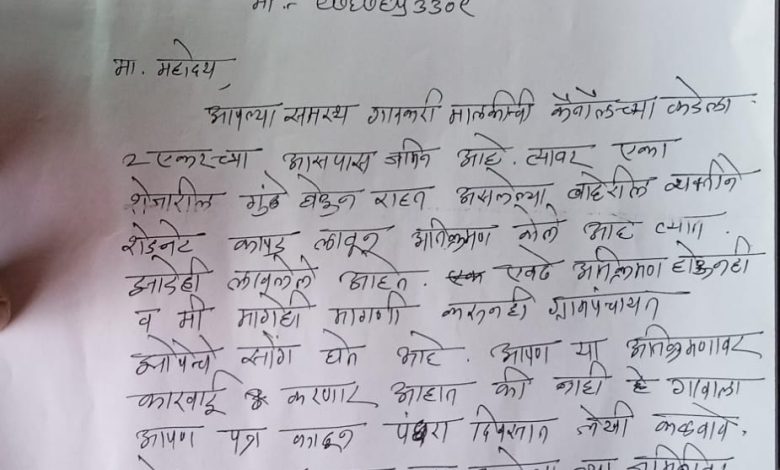 मो.- ९७६७६५३३०९
मा. महोदय,
आपल्या समस्थ गावकरी मालकीची कॅनॉलच्या कडेला
२ एकरच्या आसपास जमिन आहे. त्यावर एका
शेजारील गुंठे घेऊन राहत असलेल्या बाहेरील व्यक्तीने
शेडनेट कापड लावून अतिक्रमण केले आहे त्यात
झाडेही लावलेले आहेत. एवढे अतिक्रमण होऊनही
व मी मागेही मागणी करूनही ग्रामपंचायत
झोपेचे सोंग घेत आहे. आपण या अतिक्रमणावर
कारवाई करणार आहात की नाही हे गावाला
आपण पत्र काढून पंधरा दिवसात लेखी कळवावे.